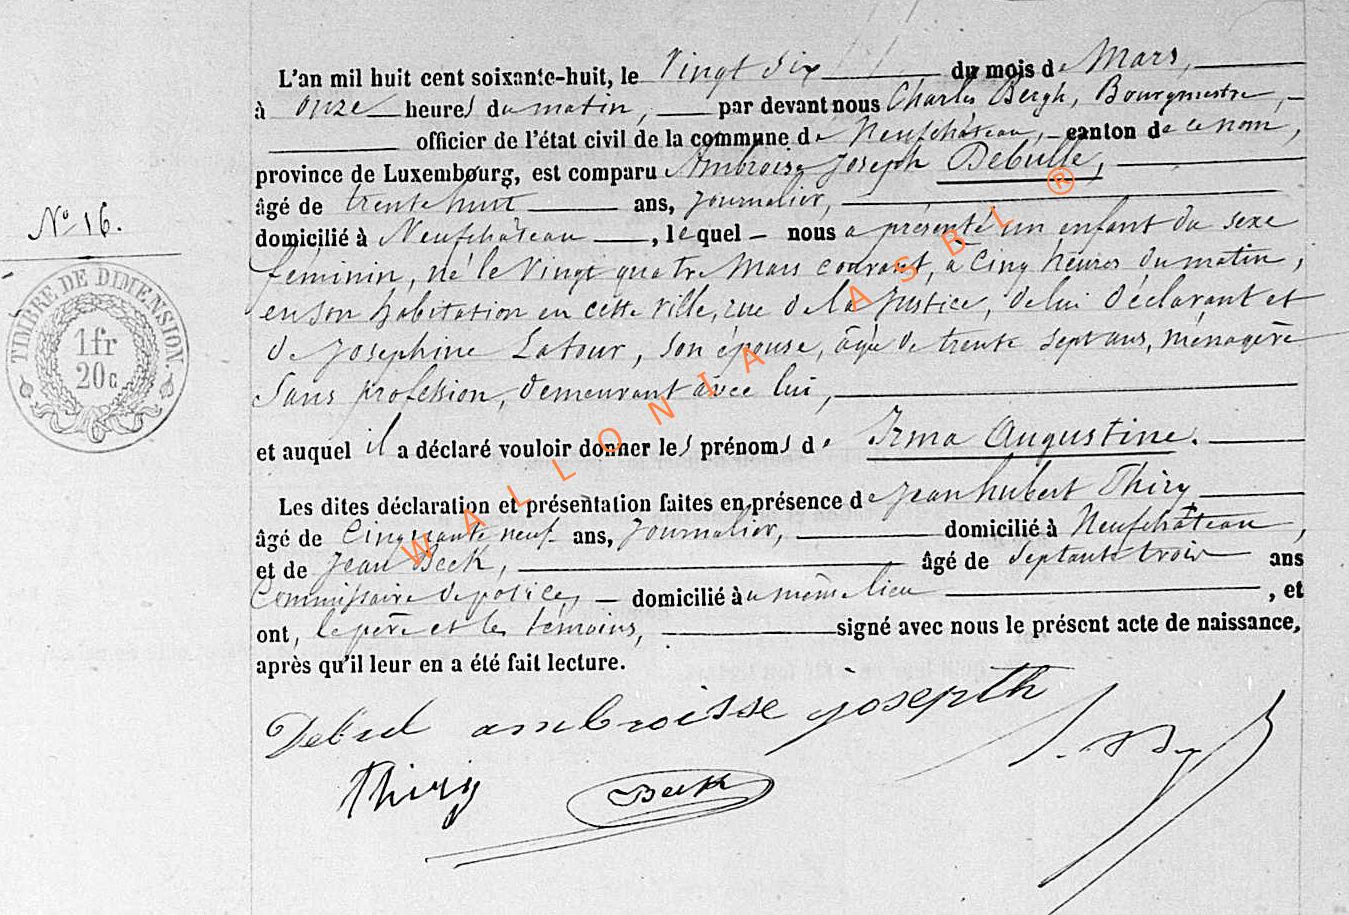 L'an mil huit cent soixante-huit, le Vingt Six du mois de Mars,
à onze heures du matin, par devant nous Charles Bergh, Bourgmestre,
officier de l'état civil de la commune de Neufchâteau, canton de ce nom,
province de Luxembourg, est comparu Ambroise Joseph Debulle,
âgé de trente huit ans, Journalier,
domicilié à Neufchâteau, lequel nous a présenté un enfant du sexe
N° 16.
féminin, né le Vingt quatre Mars courant, à Cinq heures du matin,
en son habitation en cette ville, rue de la Justice, de lui déclarant et
TIMBRE DE DIMENSION.
1 fr
20 c
de Josephine Latour, son épouse, âgée de trente sept ans, ménagère
Sans profession, demeurant avec lui,
et auquel il a déclaré vouloir donner les prénoms de Irma Augustine.
Les dites déclaration et présentation faites en présence de Jean hubert Thiry
âgé de Cinquante neuf ans, Journalier, domicilié à Neufchâteau,
et de Jean Beck, âgé de Septante trois ans
Commissaire de police, domicilié au même lieu, et
ont, le père et les témoins, signé avec nous le présent acte de naissance,
après qu'il leur en a été fait lecture.
Debul ambroisse josepth
Thiry Beck
WALLONIA ASBL ®